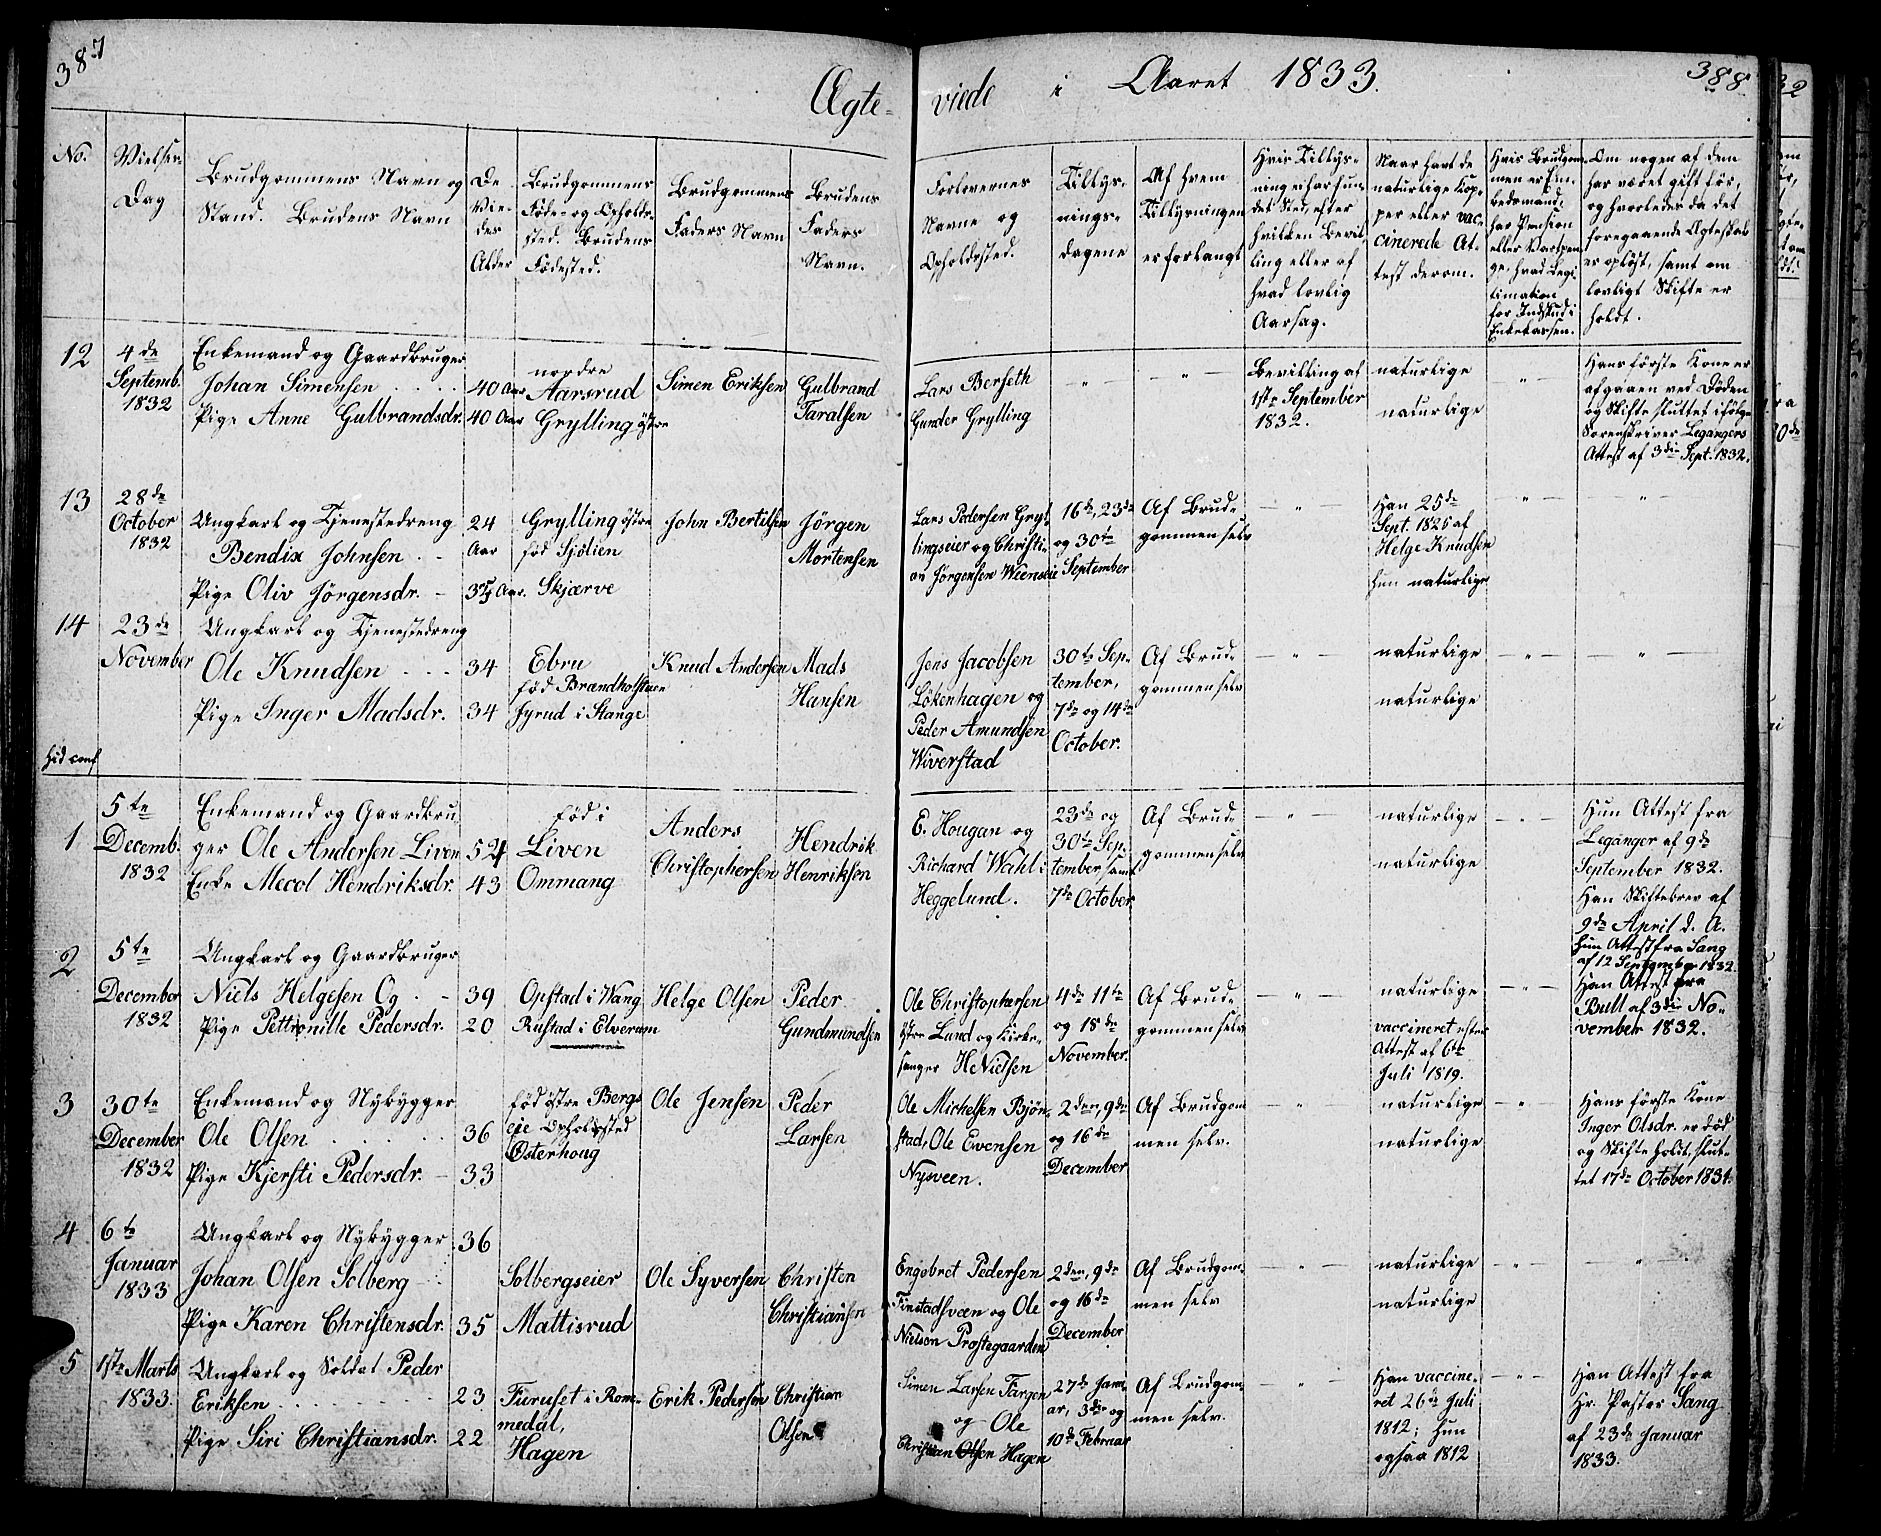 387
Ægte-
viede i Aaret 1833.
388
No.
Vielses-
Dag
Brudgommens Navn og
Stand. Brudens Navn
De
Vie-
des
Alder
Brudgommens
Føde- og Opholds-
sted. Brudens
Fødested.
Brudgommens
Faders Navn
Brudens
Faders
Navn.
Forlovernes
Navne og
Opholdssted.
Tillys-
nings-
dagene
Af hvem
Tillysningen
er forlangt
Hvis Tillys-
ning ei har fun-
det Sted, efter
hvilken Bevil-
ling eller af
hvad lovlig
Aarsag.
Naar havt de
naturlige Kop-
per eller vac-
cinerede At-
test derom.
Hvis Brudgom-
men er Em-
bedsmand,
har Pension
eller Vartpen-
ge, hvad Legi-
timation
for Indskud i
Enkekassen.
Om nogen af dem
har været gift før,
og hvorledes da det
foregaaende Ægteskab
er opløst, samt om
lovligt Skifte er
holdt.
12
4de
Septemb.
1832
Enkemand og Gaardbruger
Johan Simensen . . . .
Pige Anne Gulbrandsdr.
40 Aar
40 Aar
nordre
Aarsrud
Grylling østre
Simen Eriksen
Gulbrand
Taralsen
Lars Berseth
Gunder Grylling
Bevilling af
1ste September
1832.
naturlige
naturlige
Hans første Kone er
afgaaen ved Døden
og Skifte sluttet ifølge
Sorenskriver Legangers
Attest af 3die Sept. 1832.
13
28de
October
1832
Ungkarl og Tjenestedreng
Bendix Johnsen . .
Pige Oliv Jørgensdr. -
24
Aar
35 Aar.
Grylling østre
fød Sjølien
Skjærve
John Bertelsen
Jörgen
Mortensen
Lars Pedersen Gryl-
lingseier og Christi-
an Jørgensen Weenseie
16de, 23de
og 30te
September
Af Brud-
gommen selv
Han 25de
Sept. 1825 af
Helge Knudsen
hun naturlige
14
23de
November
Ungkarl og Tjenestedreng
Ole Knudsen . . .
Pige Inger Madsdr.
34
34
Ebru
fød Brandholstuen
Jyrud i Stange
Knud Andersen
Mads
Hansen
Jens Jacobsen
Lökenhagen og
Peder Amundsen
Wiverstad
30te Sep-
tember,
7de og 14de
October.
Af Brud-
gommen selv
naturlige
naturlige
hid conf.
1
5te
Decemb.
1832
Enkemand og Gaardbru-
ger Ole Andersen Liven
Enke Mecol Hendriksdr.
52
43
fød i
Liven
Ommang
Anders
Christophersen
Hendrik
Henriksen
E. Hougan og
Richard Wahl i
Heggelund.
23de og
30te Sep-
tember samt
7de October
Af Brud-
gommen selv
naturlige
naturlige
Hun Attest fra
Leganger af 9de
September 1832.
Han Skiftebrev af
9de April d. A.
hun Attest fra Sang
af 12 September 1832.
2
5te
December
1832
Ungkarl og Gaardbruger
Niels Helgesen Og . -
Pige Pettronille Pedersdr.
39
20
Opstad i Wang
Rustad i Elverum
Helge Olsen
Peder
Gundmundsen
Ole Christophersen
østre Lund og Kirke-
sanger H Nielsen
4de 11te
og 18de
November.
Af Brud-
gommen selv
naturlige
vaccineret efter
Attest af 6te
Juli 1819.
Han Attest fra
Bull af 3die No-
vember 1832.
3
30te
December
1832
Enkemand og Nybygger
Ole Olsen . . . . . .
Pige Kjersti Pedersdr. -
36
33
fød østre Bergs
eie Opholdssted
Österhoug
Ole Jensen
Peder
Larsen
Ole Michelsen Bjørn-
stad, Ole Evensen
Nysveen.
2den, 9de
og 16de
December
Af Brudgom-
men selv.
naturlige
naturlige
Hans første Kone
Inger Olsdr. er død
og Skifte holdt, slut-
tet 17de October 1831.
4
6te
Januar
1833
Ungkarl og Nybygger
Johan Olsen Solberg
Pige Karen Christensdr.
36
35
Solbergseier
Mattisrud
Ole Syversen
Christen
Christiansen
Engebret Pedersen
Finstadsveen og Ole
Nielsen Prestegaarden
2den, 9de
og 16de
December
Af Brudgom-
men selv
naturlige
naturlige
5
1ste Marts
1833.
Ungkarl og Soldat Peder
Eriksen . . . . . . . .
Pige Siri Christiansdr.
23
22
Furuset i Rom-
medal,
Hagen
Erik Pedersen
Christian
Olsen
Simen Larsen Farger
og Ole
Christian Olsen Hagen
27de Janu-
ar, 3die og
10de Februar
Af Brudgom-
men selv.
Han vaccine-
ret 26de Juli
1812; hun
ogsaa 1812
Han Attest fra
Hr. Pastor Sang
af 23de Januar
1833.